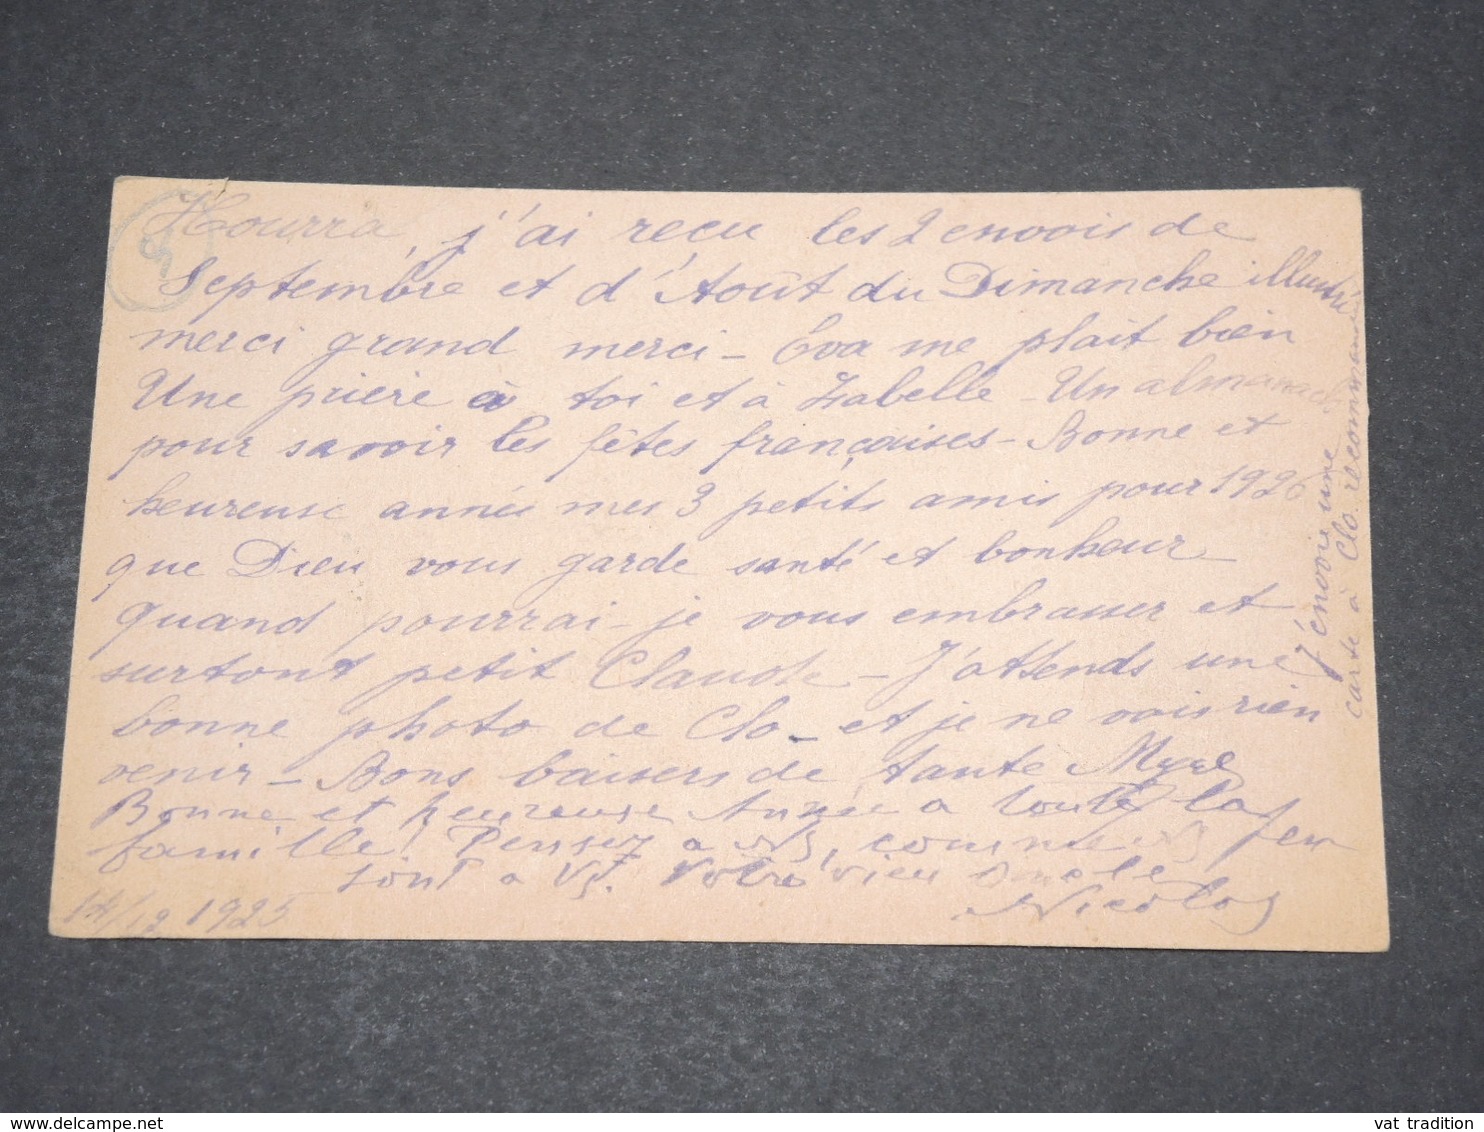 Hourra, j'ai reçu les 2 envois de
Septembre et d'Août du Dimanche illustré
merci grand merci - Eva me plait bien
Une prière à toi et à Zabelle - Un almanach
pour savoir les fêtes françaises - Bonne et
heureuse année mes 3 petits amis pour 1926
que Dieu vous garde santé et bonheur
quand pourrai-je vous embrasser et
surtout petit Claude - J'attends une
bonne photo de Clo - et je ne vois rien
venir - Bons baisers de tante
Bonne et heureuse Année a toute la
famille! Pensez a ns, comme
sont a vs. Votre vieu
Nicolas
14/12 1925
J'envoie une
carte à Clo. recommandée
5
delcampe.net
vat tradition